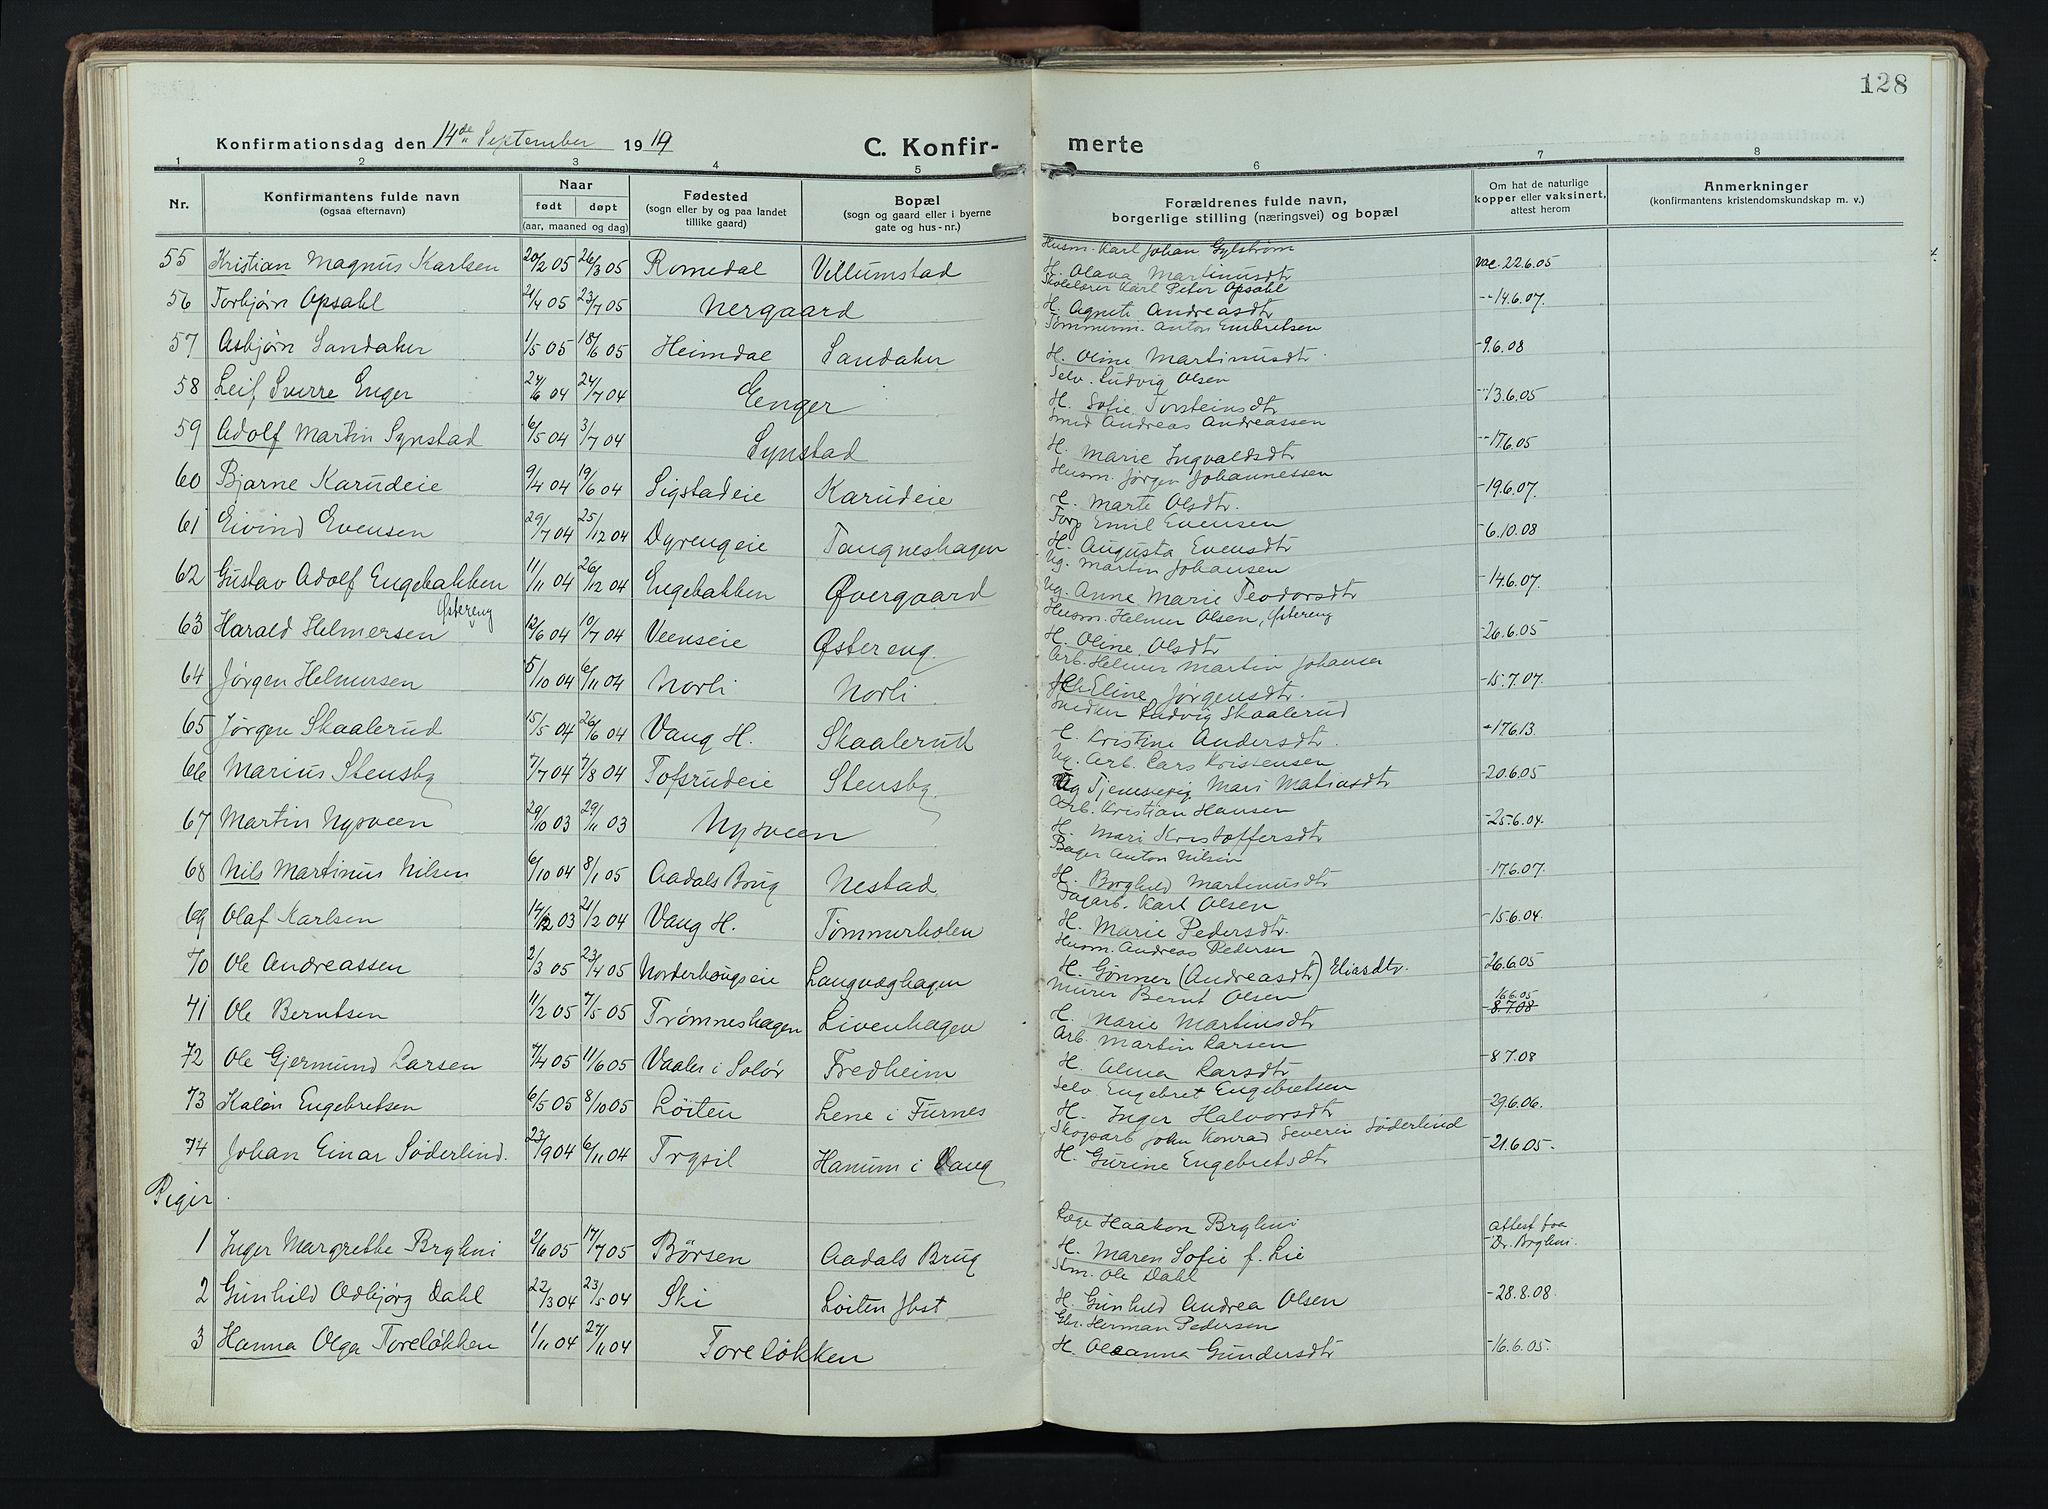 128
Konfirmationsdag den 14de September 1919
C. Konfir-
merte
1 2 3 4 5 6 7 8
Nr. Konfirmantens fulde navn (ogsaa efternavn) Naar født døpt (aar, maaned og dag) Fødested (sogn eller by og paa landet tillike gaard) Bopæl (sogn og gaard eller i byerne gate og hus-nr.) Forældrenes fulde navn, borgerlige stilling (næringsvei) og bopæl Om hat de naturlige kopper eller vaksinert, attest herom Anmerkninger (konfirmantens kristendomskundskap m. v.)
Husm. Karl Johan Gylstrøm
55 Kristian Magnus Karlsen 20/2 05 26/3 05 Romedal Villumstad H. Olava Martinusdtr vac. 22.6.05
Skolelærer Karl Peter Opsahl
56 Torbjørn Opsahl 21/4 05 23/7 05 Nergaard H. Agnete Andreasdtr -14.6.07.
Tømmerm. Anton Embretsen
57 Asbjørn Sandaker 1/5 05 18/6 05 Heimdal Sandaker H. Oline Martinusdtr. -9.6.08
Selv. Ludvig Olsen
58 Leif Sverre Enger 24/6 04 24/7 04 Enger H. Sofie Torsteinsdtr -13.6.05
Smed Andreas Andreassen
59 Adolf Martin Synstad 6/5 04 3/7 04 Synstad H. Marie Ingvaldsdtr -17.6.05
Husm. Jørgen Johannessen
60 Bjarne Karudeie 9/4 04 19/6 04 Sigstadeie Karudeie H. Marte Olsdtr. -19.6.07.
Torp Emil Evensen
61 Eivind Evensen 29/7 04 25/12 04 Dyrengeie Tangneshagen H. Augusta Evensdtr -6.10.08
Ug. Martin Johansen
62 Gustav Adolf Engebakken 11/11 04 26/12 04 Engebakken Øvergaard Ug. Anne Marie Teodorsdtr -14.6.07.
Østereng
Husm. Helmer Olsen, Østereng
63 Harald Helmersen 12/6 04 10/7 04 Veenseie Østereng. H. Oline Olsdtr -26.6.05
Arb. Helmer Martin Johansen
64 Jørgen Helmersen 5/10 04 6/11 04 Norli Norli H. Eline Jørgensdtr. -15.7.07.
Snedker Ludvig Skaalerud
65 Jørgen Skaalerud 15/5 04 26/6 04 Vang H. Skaalerud H. Kristine Andersdtr. -17.6.13
Ug. Arb. Lars Kristensen
66 Marius Stensby 7/7 04 7/8 04 Tofsrudeie Stensby. Ug Tjenestepig Mari Matiasdtr -20.6.05
Arb. Kristian Hansen
67 Martin Nysveen 29/10 03 29/11 03 Nysveen H. Mari Kristoffersdtr -25.6.04.
Bager Anton Nilsen
68 Nils Martinus Nilsen 6/10 04 8/1 05 Aadals Brug Nestad H. Borghild Martinusdtr -17.6.07.
Dagarb. Karl Olsen
69 Olaf Karlsen 14/12 03 21/2 04 Vang H. Tømmerholen H. Marie Pedersdtr. -15.6.04.
Husm. Andreas Pedersen
70 Ole Andreassen 2/3 05 23/4 05 Norderhougseie Langvæghagen H. Gønner (Andreasdtr) Eliasdtr. -26.6.05
Murer Bernt Olsen 16.6.05
41 Ole Berntsen 11/2 05 7/5 05 Trømneshagen Livenhagen H. Marie Martinsdtr -8.7.08
Arb. Martin Larsen
72 Ole Gjermund Larsen 7/4 05 11/6 05 Vaaler i Solør Fredheim H. Alma Larsdtr -8 7.08
Selv. Engebret Engebretsen
73 Kalôn Engebretsen 6/5 05 8/10 05 Løiten Lene i Furnes H. Inger Halvorsdtr -29.6.06.
Skogarb John Konrad Severin Søderlind
74 Johan Einar Søderlind. 23/9 04 6/11 04 Trysil Hanum i Vang H. Gurine Engebretsdtr -21.6.05-
Piger.
Læge Haakon Bryhni attest fra
1 Inger Margrethe Bryhni 2/6 05 17/7 05 Børsen Aadals Brug H. Maren Sofie f. Lie -Dr. Bryhni.
Stm. Ole Dahl
2 Gunhild Odbjørg Dahl 22/3 04 23/5 04 Ski Løiten Jbst H Gunhild Andrea Olsen -28.8.08.
Gbr. Herman Pedersen
3 Hanna Olga Toreløkken 1/11 04 27/11 04 Toreløkken H. Oleanna Gundersdtr -16.6.05.